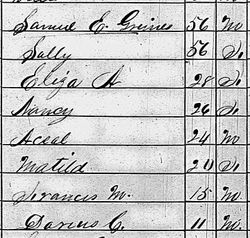 Samuel E. Grimes 56 M
Sally 56 F
Eliza A 28 F
Nancy 26 F
Acsal 24 M
Matild 20 F
Francis M. 15 M
Darius C. 11 M